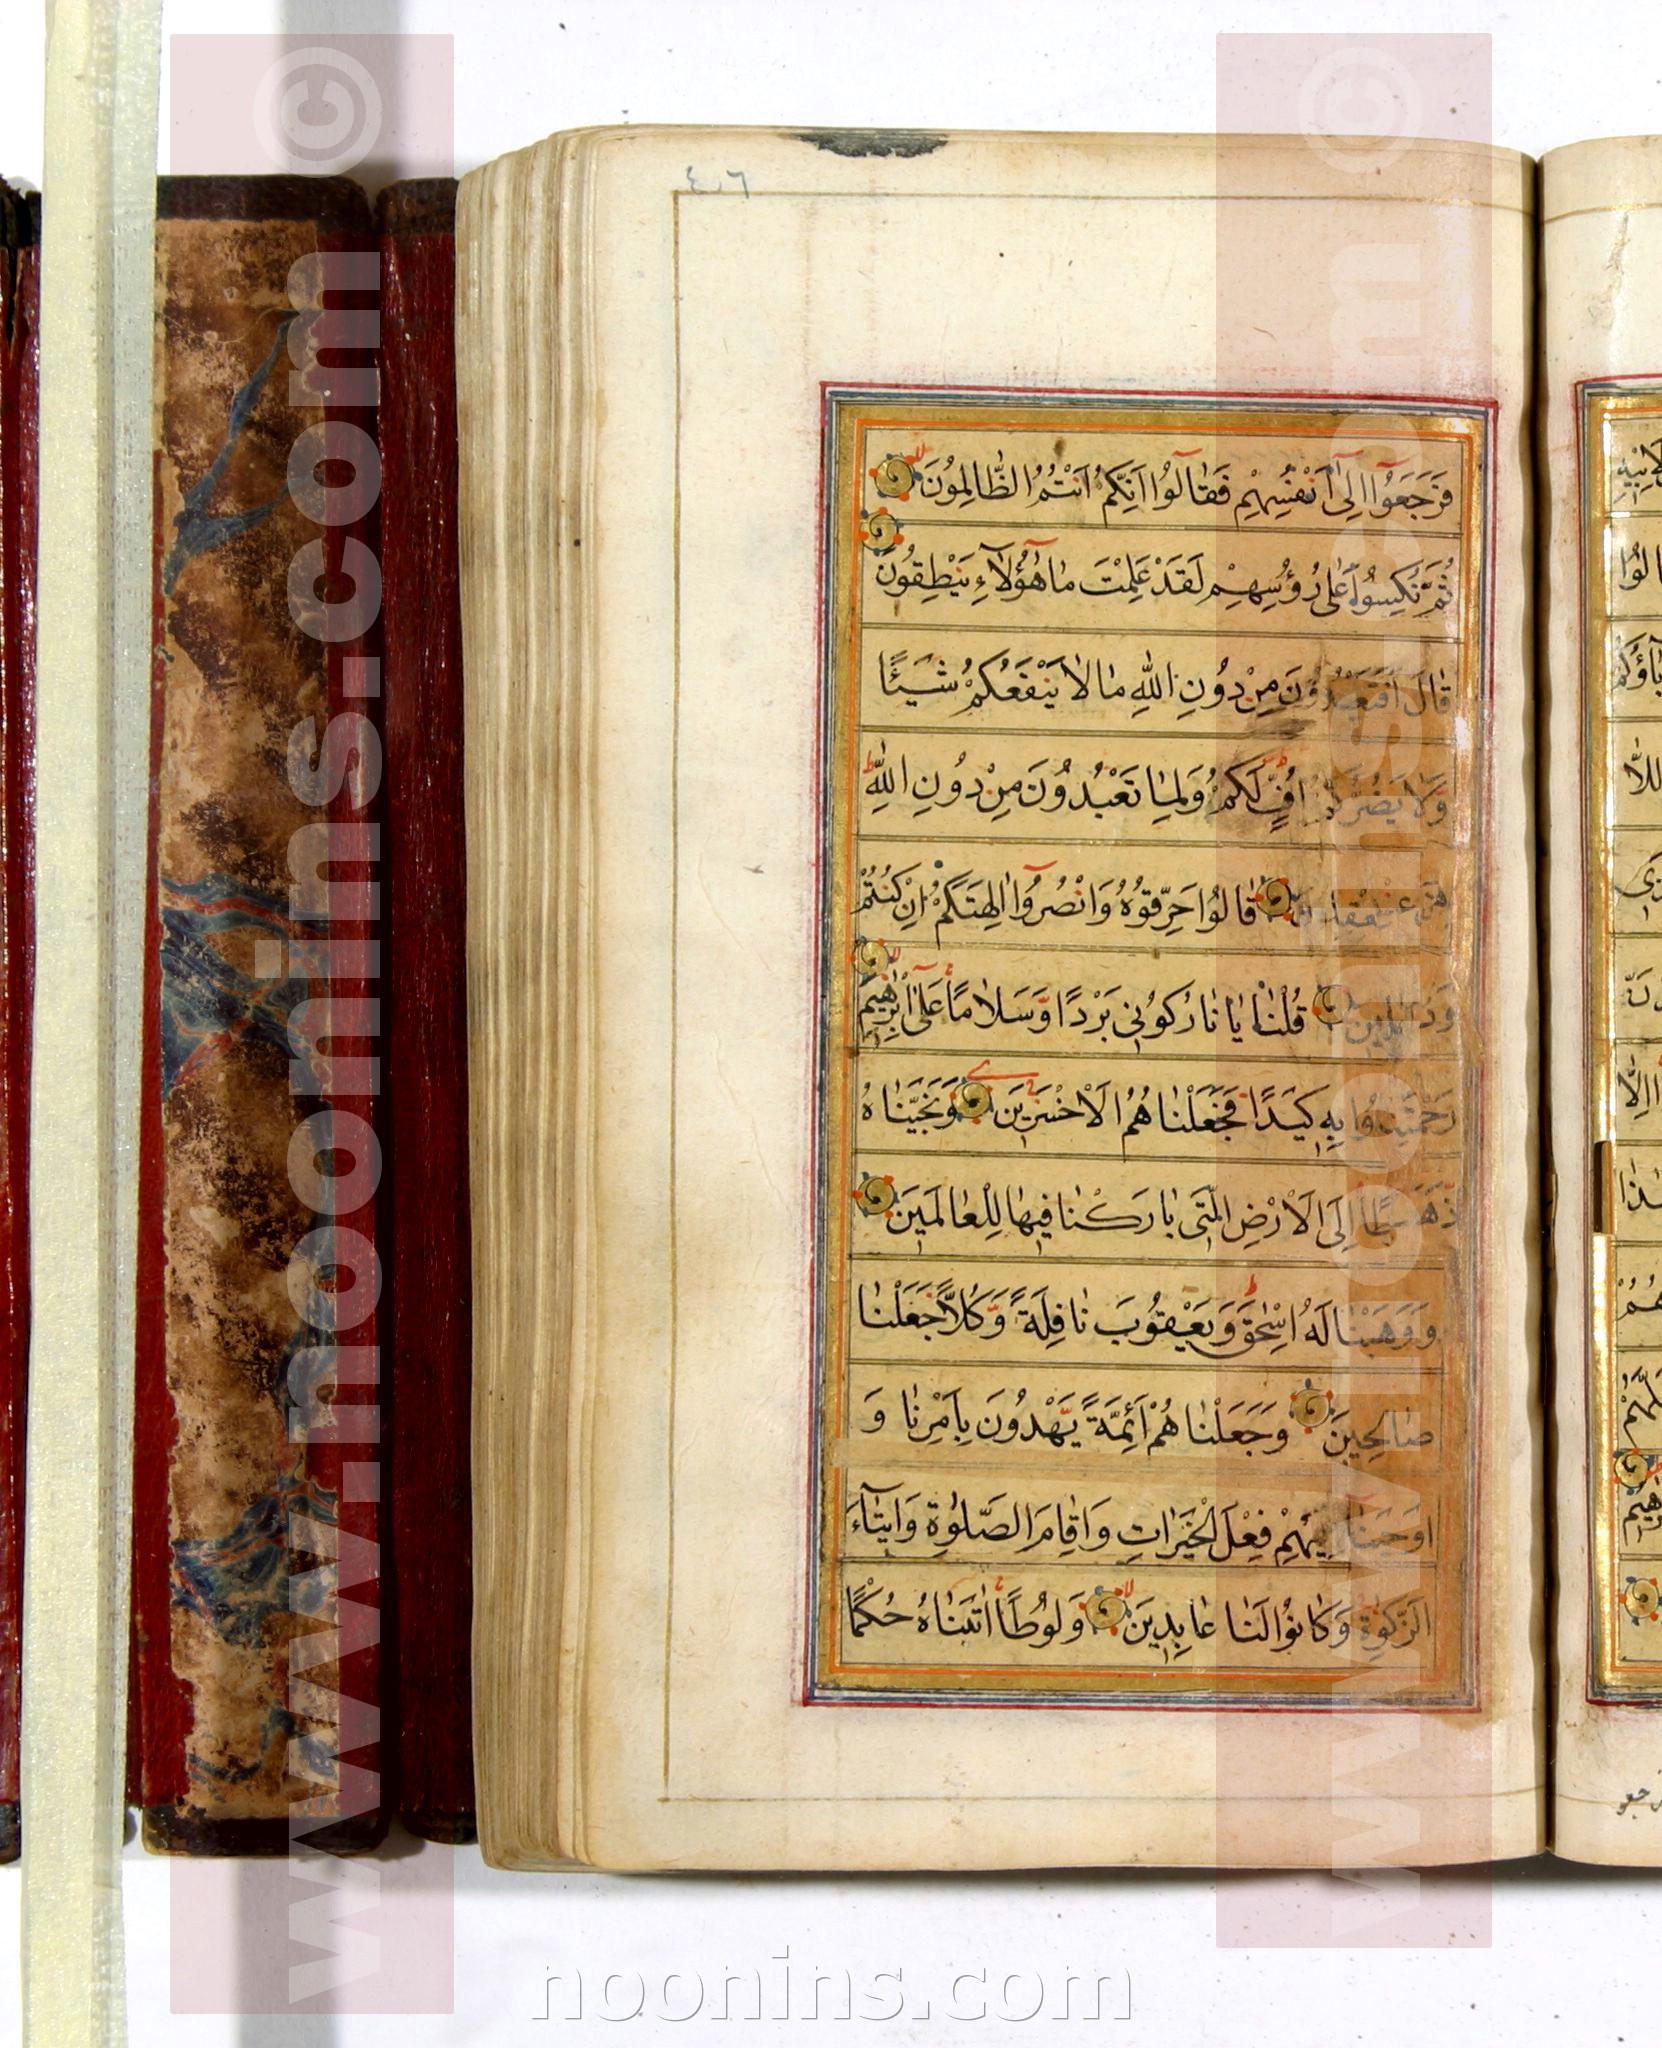 ٤٠٦
فَرَجَعُوٓا اِلٰٓى اَنْفُسِهِمْ فَقَالُوٓا اِنَّكُمْ اَنْتُمُ الظَّالِمُونَ
ثُمَّ نُكِسُوا عَلٰى رُؤُسِهِمْ لَقَدْ عَلِمْتَ مَا هٰٓؤُلَآءِ يَنْطِقُونَ
قَالَ اَفَتَعْبُدُونَ مِنْ دُونِ اللّٰهِ مَا لَا يَنْفَعُكُمْ شَيْئًا
وَلَا يَضُرُّكُمْ اُفٍّ لَكُمْ وَلِمَا تَعْبُدُونَ مِنْ دُونِ اللّٰهِ
قَالُوا حَرِّقُوهُ وَانْصُرُوٓا اٰلِهَتَكُمْ اِنْ كُنْتُمْ
قُلْنَا يَا نَارُ كُونِى بَرْدًا وَّسَلَامًا عَلٰٓى اِبْرٰهِيمَ
بِهٖ كَيْدًا فَجَعَلْنَاهُمُ الْاَخْسَرِينَ وَنَجَّيْنَاهُ
اِلَى الْاَرْضِ الَّتِى بَارَكْنَا فِيهَا لِلْعَالَمِينَ
وَوَهَبْنَا لَهُ اِسْحٰقَ وَيَعْقُوبَ نَافِلَةً وَّكُلًّا جَعَلْنَا
صَالِحِينَ وَجَعَلْنَاهُمْ اَئِمَّةً يَّهْدُونَ بِاَمْرِنَا وَ
اَوْحَيْنَا فِعْلَ الْخَيْرَاتِ وَاِقَامَ الصَّلٰوةِ وَاِيتَآءَ
الزَّكٰوةِ وَكَانُوا لَنَا عَابِدِينَ وَلُوطًا اٰتَيْنَاهُ حُكْمًا
www.noonins.com ©
www.noonins.com ©
noonins.com